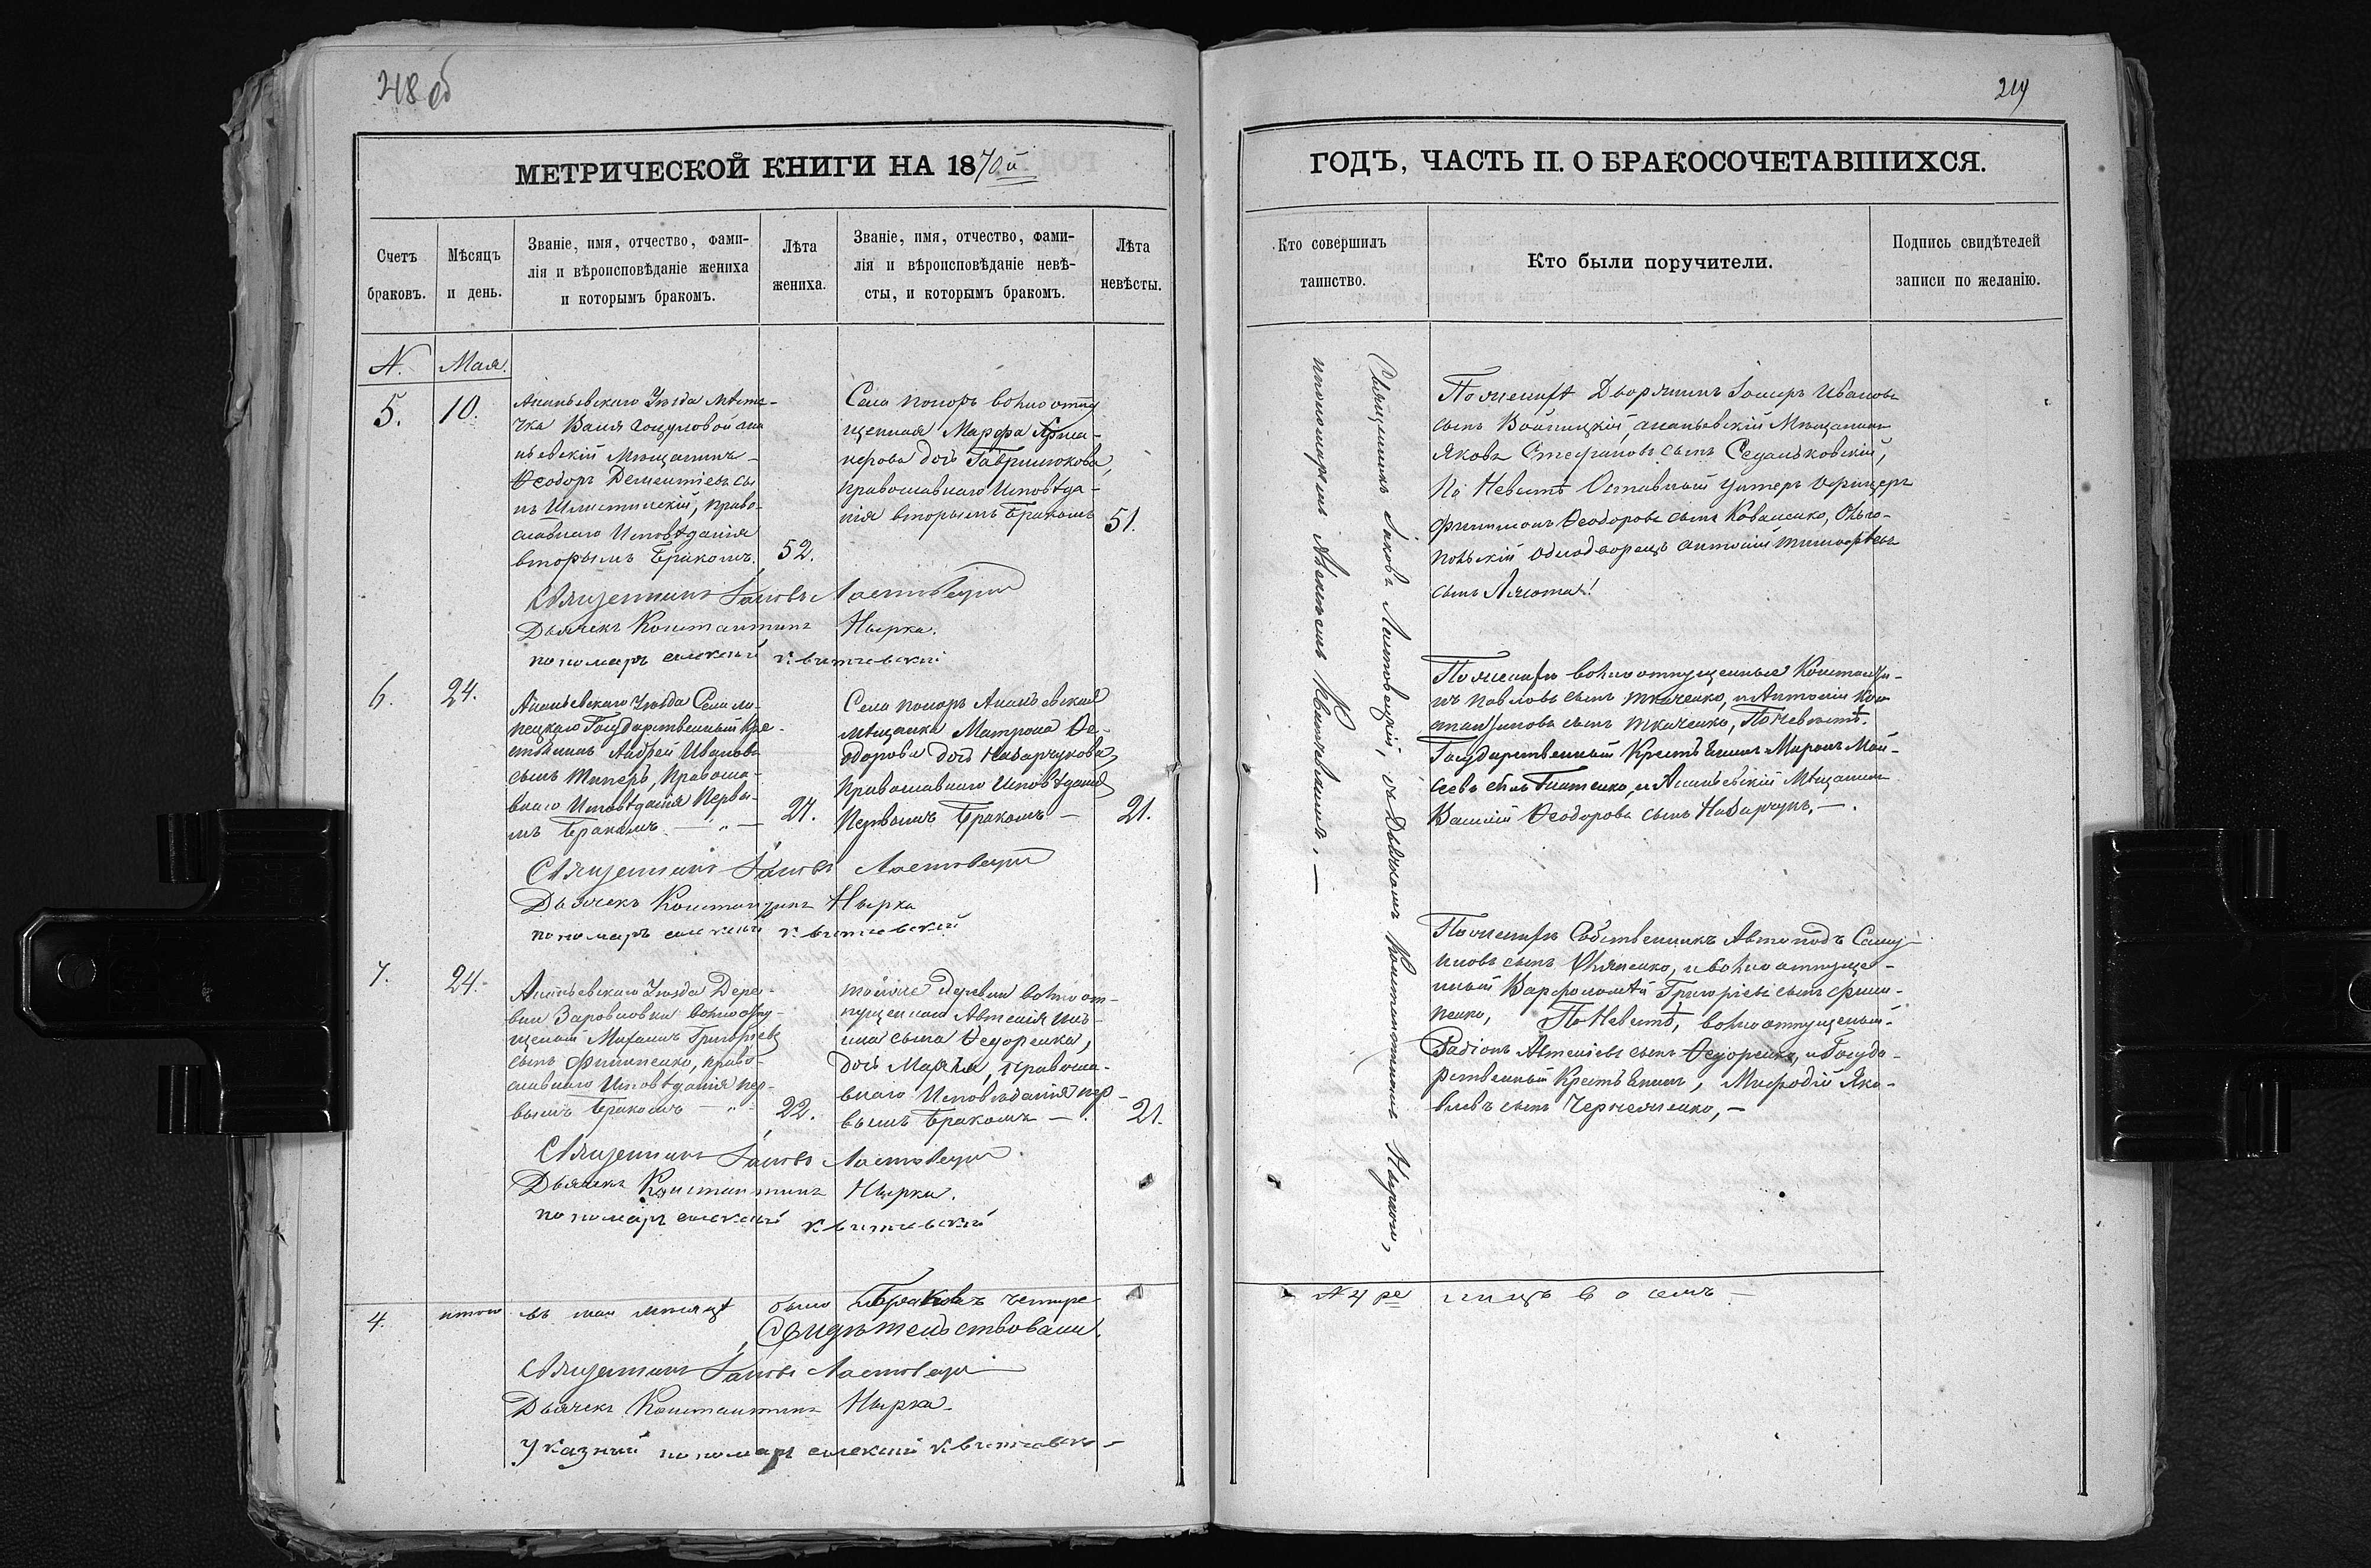 218 об
МЕТРИЧЕСКОЙ КНИГИ НА 1870й
Счетъ браковъ.
Мѣсяцъ и день.
Званіе, имя, отчество, фами-
лія и вѣроисповѣданіе жениха
и которымъ бракомъ.
Лѣта жениха.
Званіе, имя, отчество, фами-
лія и вѣроисповѣданіе невѣ-
сты, и которымъ бракомъ.
Лѣта невѣсты.
N. Мая.
5. 10.
Ананьевскаго Уѣзда Мѣсте-
чка Валя Гоцуловой ана
ньевскій Мещанинъ
Ѳеодоръ Дементіевъ сы
нъ право-
славнаго Исповѣданія
вторымъ Бракомъ. 52.
Села вольноотпу
щенная Марфа
дочь Гаврилюкова,
православнаго Исповѣда-
нія вторымъ Бракомъ 51.
Священникъ Іаковъ Ластовецкій
Дьячекъ Константинъ Нырка.
пономарь Алексѣй Квитневскій
6. 24.
Ананьевскаго Уѣзда Села
Государственный Кре-
стьянинъ Андрей Ивановъ
сынъ православ-
внаго Исповѣданія Первы-
мъ Бракомъ — 21.
Села Ананьевская
мѣщанка Матрона Ѳе-
одорова дочь Назарчукова
православнаго Исповѣданія
Первымъ Бракомъ — 21.
Священникъ Іаковъ Ластовецкій
Дьячекъ Константинъ Нырка
пономарь Алексѣй Квитневскій
7. 24.
Ананьевскаго Уѣзда Дере-
вни вольноотпу-
щеный Михаилъ Григорьевъ
сынъ Филипенко, право-
славнаго Исповѣданія пер-
вымъ Бракомъ — 22.
тойже деревни вольноот-
пущеннаго Автенія
сына Ѳедоренка,
дочь Марѳа, православ-
внаго Исповѣданія пер-
вымъ Бракомъ — 21.
Священникъ Іаковъ Ластовецкій
Дьячекъ Константинъ Нырка.
пономарь Алексѣй Квитневскій
4. итого въ маѣ мѣсяцѣ было Браковъ четыре
Свидѣтельствовали.
Священникъ Іаковъ Ластовецкій
Дьячекъ Константинъ Нырка
Указный пономарь Алексѣй Квитневскі
219
ГОДЪ, ЧАСТЬ II. О БРАКОСОЧЕТАВШИХСЯ.
Кто совершилъ таинство.
Кто были поручители.
Подпись свидѣтелей записи по желанію.
Священникъ Іаковъ Ластовецкій, съ Дьячкомъ Константиномъ Ныркою,
пономаремъ Алексѣемъ Квитневскимъ. —
По женихѣ Дворянинъ Ивановъ
сынъ Войницкій, ананьевскій Мещанинъ
Яковъ Стефановъ сынъ Седлковскій,
По Невѣстѣ Отставный Унтеръ офицеръ
Филимонъ Ѳеодоровъ сынъ Коваленко, Ольго-
польскій однодворецъ Антоній Тимофѣевъ
сынъ Лясота!
По женихѣ вольноотпущенные Константи-
нъ Павловъ сынъ Ткаченко, и Антоній Кон
стантиновъ сынъ Ткаченко, По Невѣстѣ.
Государственный Крестьянинъ Миронъ Мои-
сеевъ сынъ Гнатенко, и Ананьевскій Мѣщанинъ
Василій Ѳеодоровъ сынъ Назарчукъ, — .
По женихѣ Собственникъ Автоподъ Саму
иловъ сынъ и вольноотпуще-
нный Варфоломѣй Григорьевъ сынъ Фили-
пенко, По Невѣстѣ, вольноотпущеный
Радіонъ Автеніевъ сынъ Ѳедоренко, и Госуда-
рственный Крестьянинъ, Меѳодій Яко-
влевъ сынъ —
А 4ре лицъ восемъ —